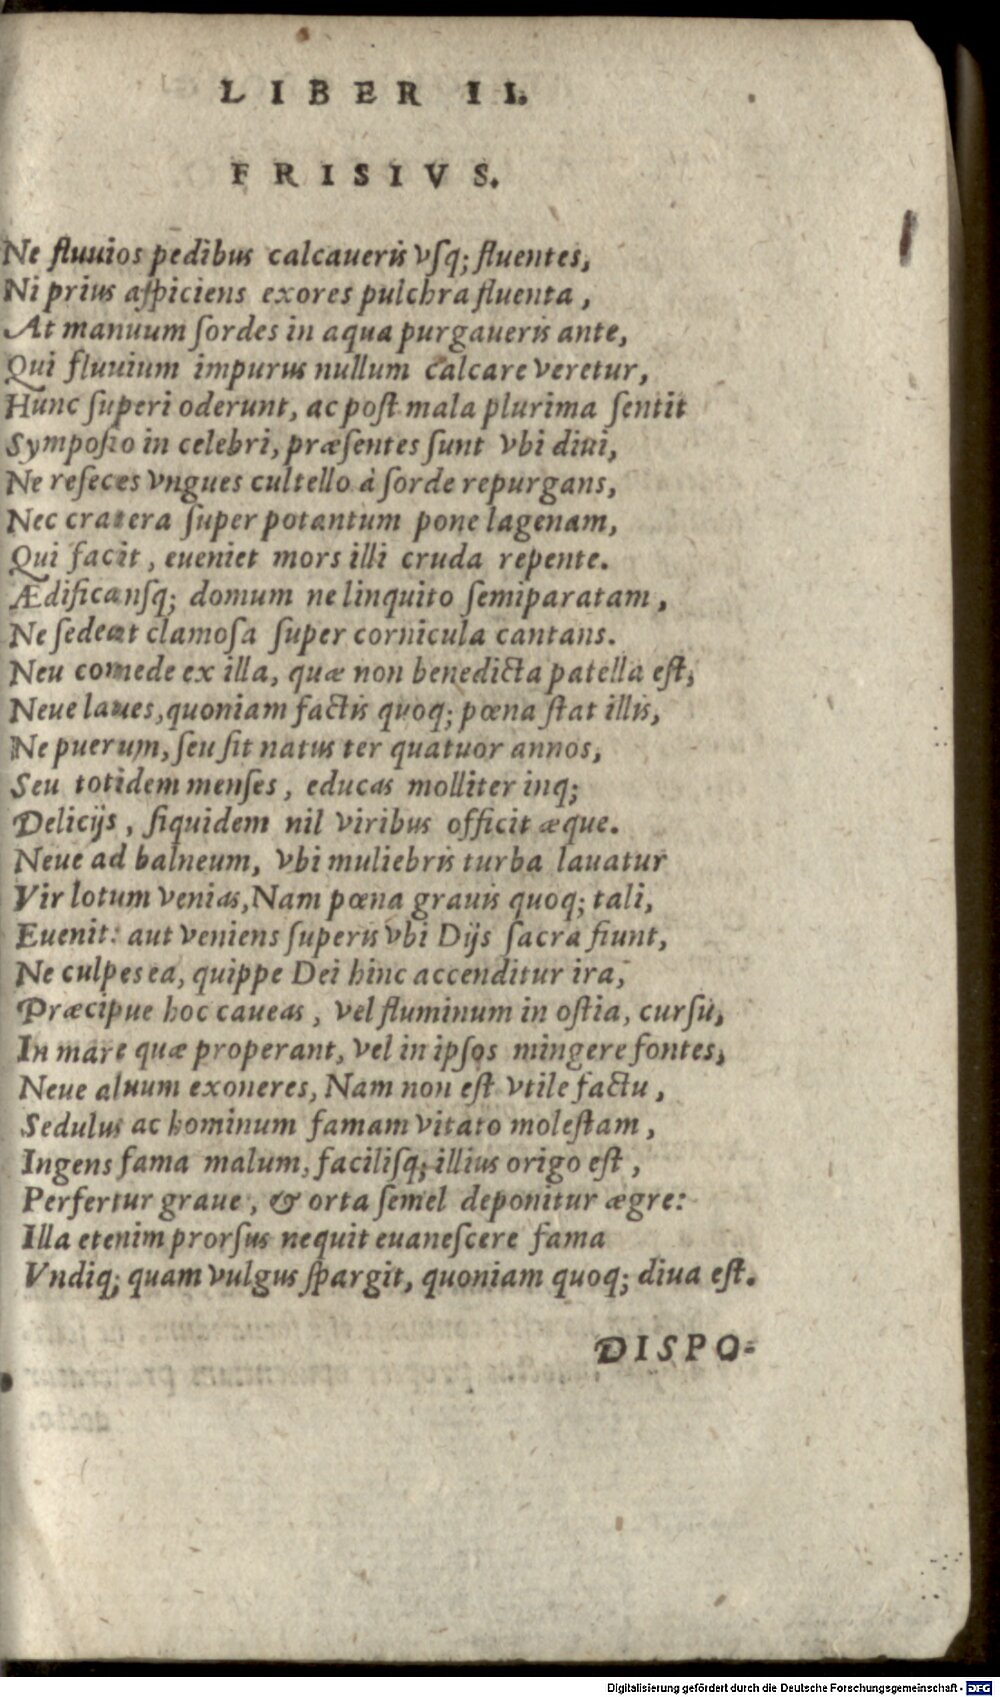 LIBER II.
FRISIVS.
Ne fluuios pedibus calcaueris vſq; fluentes,
Ni prius aſpiciens exores pulchra fluenta,
At manuum ſordes in aqua purgaueris ante,
Qui fluuium impurus nullum calcare veretur,
Hunc ſuperi oderunt, ac poſt mala plurima ſentit
Sympoſio in celebri, præſentes ſunt vbi diui,
Ne reſeces vngues cultello à ſorde repurgans,
Nec cratera ſuper potantum pone lagenam,
Qui facit, eueniet mors illi cruda repente.
Ædificansq; domum ne linquito ſemiparatam,
Ne ſedeat clamoſa ſuper cornicula cantans.
Neu comede ex illa, quæ non benedicta patella eſt,
Neue laues, quoniam factis quoq; pœna ſtat illis,
Ne puerum, ſeu ſit natus ter quatuor annos,
Seu totidem menſes, educas molliter inq;
Delicijs, ſiquidem nil viribus officit æque.
Neue ad balneum, vbi muliebris turba lauatur
Vir lotum venias, Nam pœna grauis quoq; tali,
Euenit: aut veniens ſuperis vbi Dijs ſacra fiunt,
Ne culpes ea, quippe Dei hinc accenditur ira,
Præcipue hoc caueas, vel fluminum in oſtia, curſu,
In mare quæ properant, vel in ipſos mingere fontes,
Neue aluum exoneres, Nam non eſt vtile factu,
Sedulus ac hominum famam vitato moleſtam,
Ingens fama malum, faciliſq; illius origo eſt,
Perfertur graue, & orta ſemel deponitur ægre:
Illa etenim prorſus nequit euaneſcere fama
Vndiq; quam vulgus ſpargit, quoniam quoq; diua eſt.
DISPO-
Digitalisierung gefördert durch die Deutsche Forschungsgemeinschaft - DFG